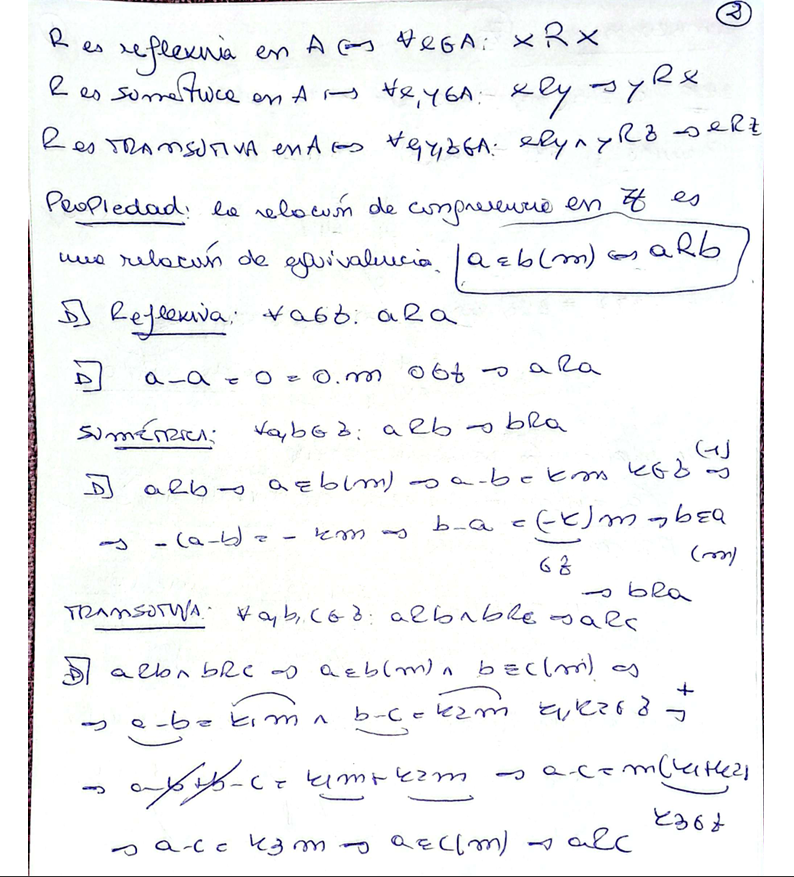 2
R es reflexiva en A ⇔ ∀x∈A: xRx
R es simétrica en A ⇔ ∀x,y∈A: xRy → yRx
R es TRANSITIVA en A ⇔ ∀x,y,z∈A: xRy ∧ yRz → xRz
Propiedad: la relación de congruencia en Z es
una relación de equivalencia. a≡b(m) ⇔ aRb
D] Reflexiva: ∀a∈Z: aRa
D] a-a = 0 = 0.m 0∈Z → aRa
SIMÉTRICA: ∀a,b∈Z: aRb → bRa
D] aRb → a≡b(m) → a-b = km k∈Z (-1) ⇒
→ -(a-b) = -km → b-a = (-k)m → b≡a
∈Z (m)
→ bRa
TRANSITIVA: ∀a,b,c∈Z: aRb ∧ bRc → aRc
D] aRb ∧ bRc → a≡b(m) ∧ b≡c(m) ⇒
→ a-b = k1m ∧ b-c = k2m k1,k2∈Z + →
→ a-b+b-c = k1m + k2m → a-c = m(k1+k2)
k3∈Z
→ a-c = k3m → a≡c(m) → aRc